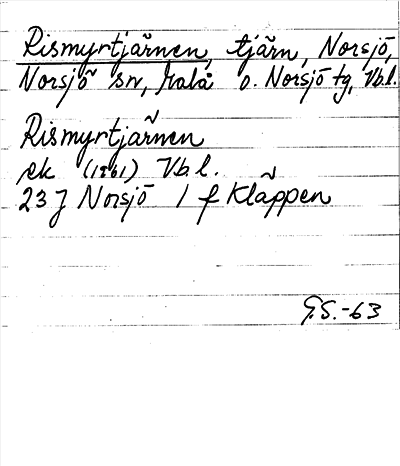 Rismyrtjärnen, tjärn, Norsjö,
Norsjö sn, Malå o. Norsjö tg, Vbl.
Rismyrtjärnen
ek (1961) Vbl.
23 J Norsjö 1 f Kläppen
G.S.-63